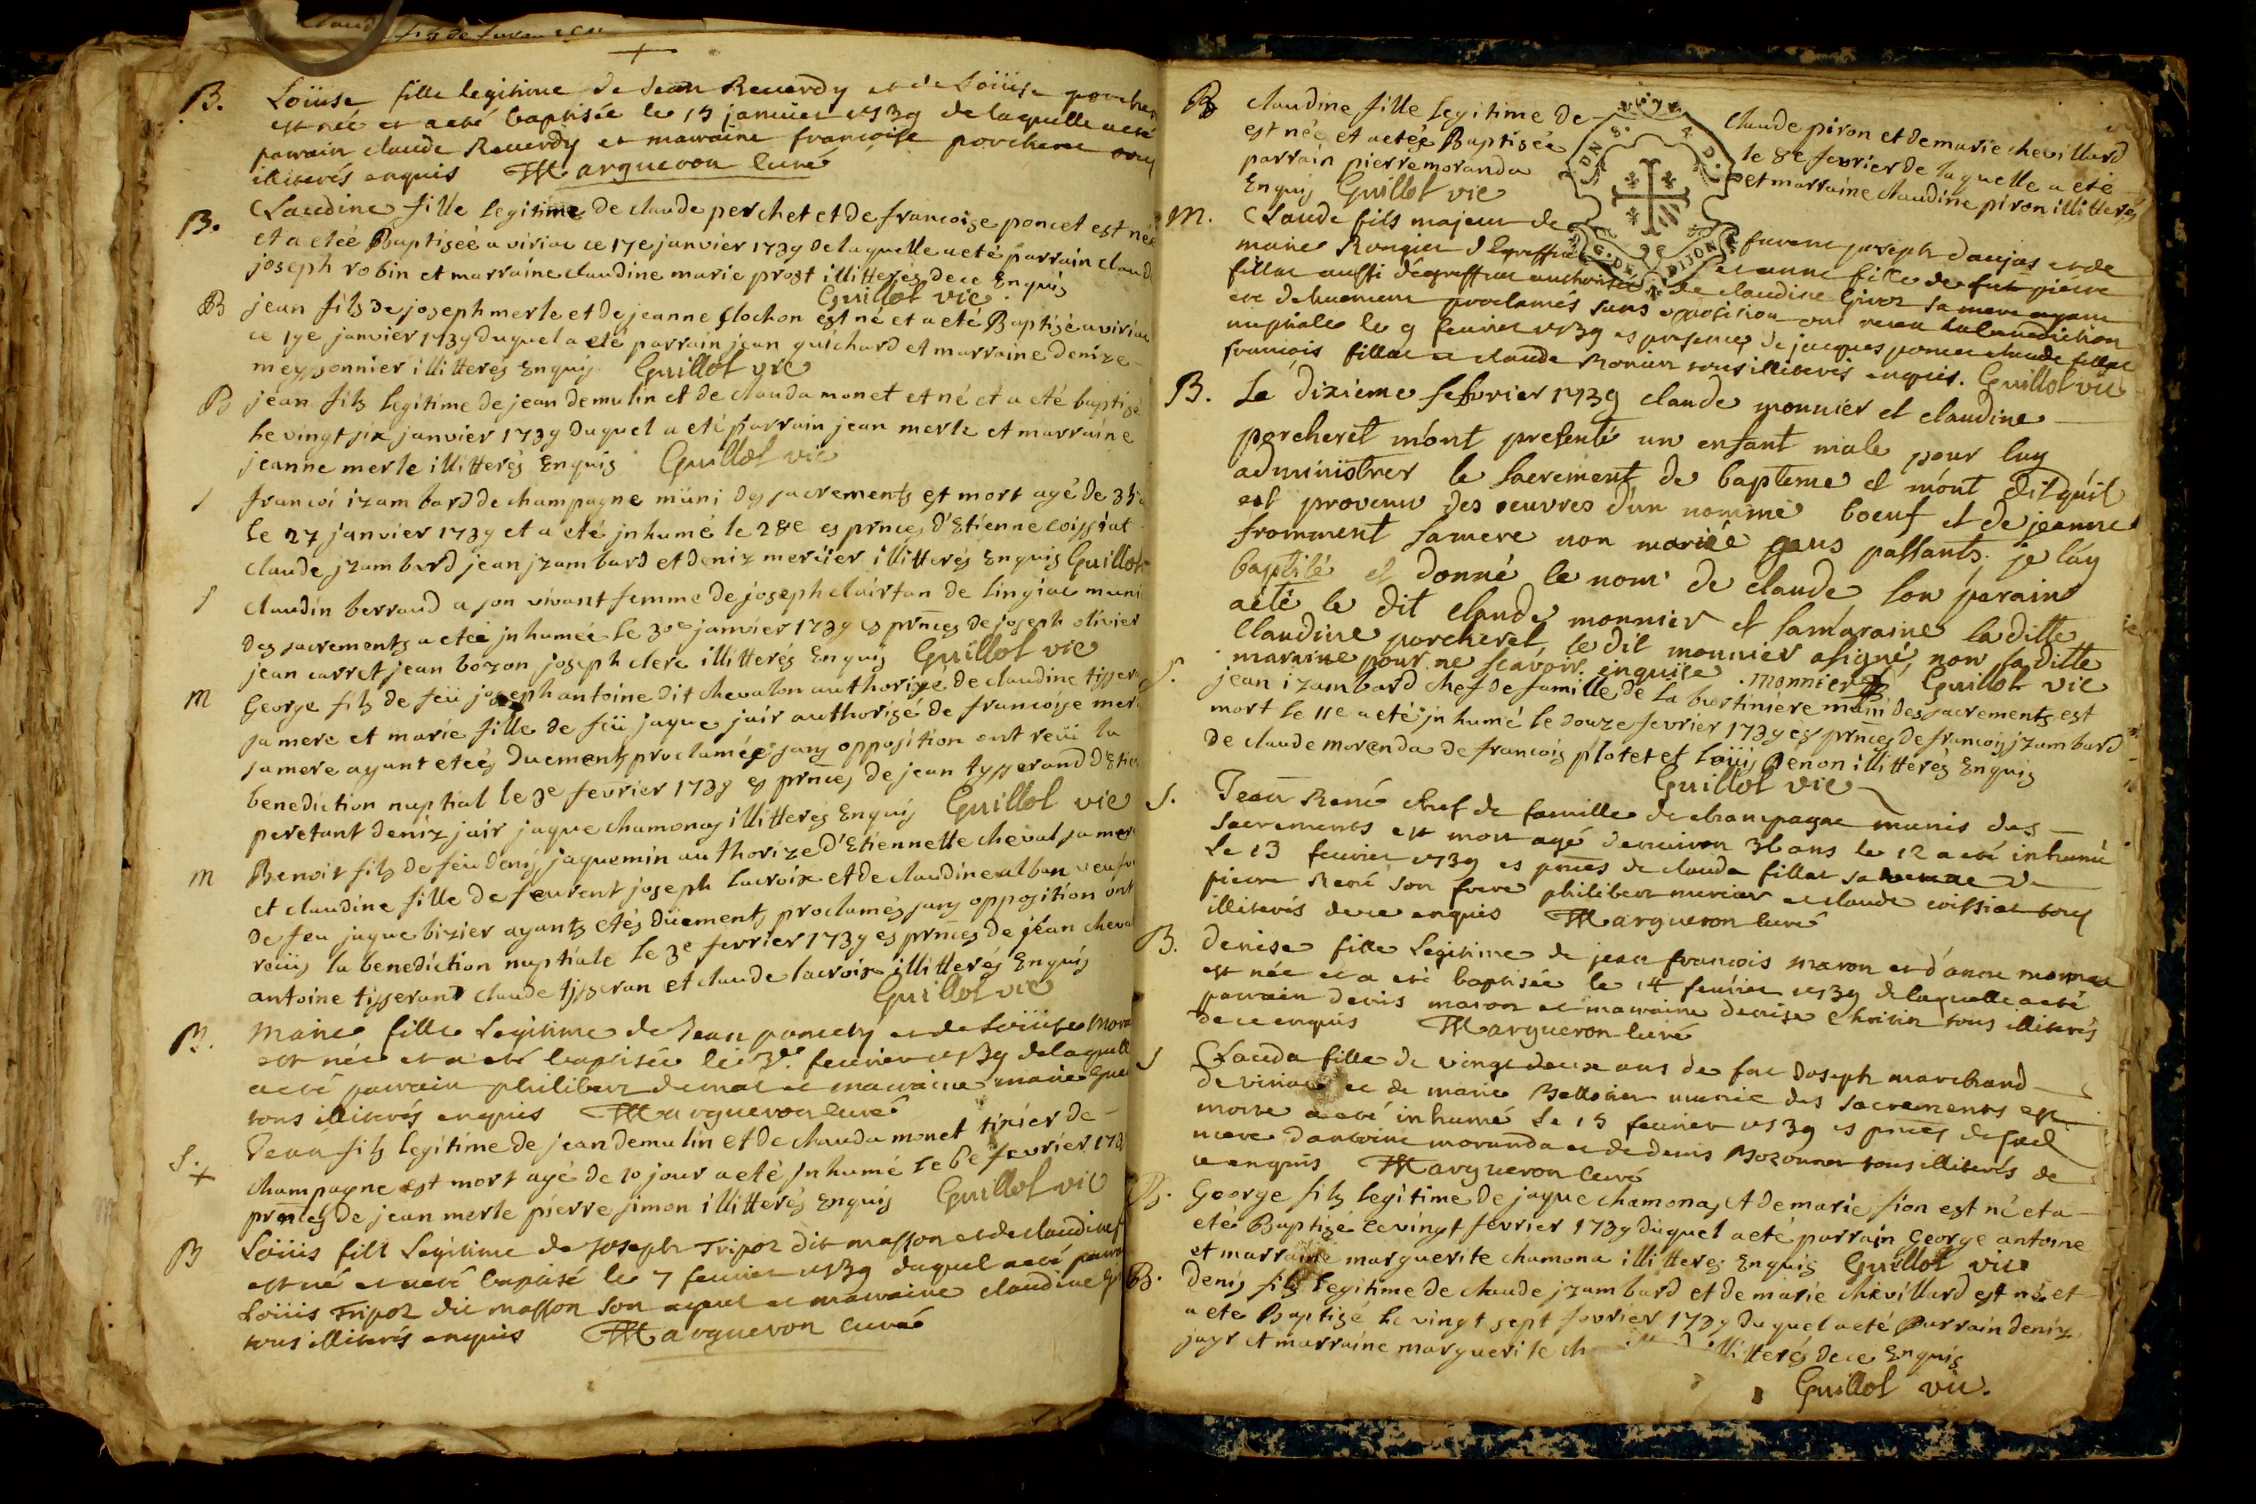 B. Loüise fille legitime de Jean Reverdy et de Loüise porcher
est née et a eté baptisée le 15 janvier 1739 de laquelle a eté
parrain claude Reverdy et marraine francoise porchere tous
illiterés enquis Margueron Curé
B. Claudine fille legitime de claude perchet et de francoise poncet est née
et a eteé Baptiseé a viriac ce 17e janvier 1739 de laquelle a eté parrain claude
joseph robin et marraine claudine marie prost illitterés de ce Enquis
Guillot vic
B jean fils de joseph merle et de jeanne flochon est né et a eté Baptisé a viriac
ce 19e janvier 1739 duquel a eté parrain jean guichard et marraine denize
meyssonnier illitterés Enquis Guillot vic
B jean fils legitime de jean demulin et de clauda monet et né et a eté baptizé
le vingt six janvier 1739 duquel a eté parrain jean merle et marraine
jeanne merle illitterés Enquis Guillot vic
S francoi izambard de champagne müni des sacrements est mort agé de
le 27 janvier 1739 et a eté jnhumé le 28e es prnces d'Etienne coissiat
claude jzambard jean jzambard et deniz mercier illitterés Enquis Guillot
S claudin berraud a son vivant femme de joseph clairtan de lingiac muni
des sacrements a eteé jnhumée le 30e janvier 1739 es prnces de joseph olivier
jean carret jean bozon joseph clerc illitterés Enquis Guillot vic
M George fils de feü joseph antoine dit chevalon authorize de claudine tisser
sa mere et marie fille de feü jaque jair authorisé de francoise mer
sa mere ayant eteés duements proclamées sans opposition ont reüi la
benediction nuptial le 3e fevrier 1739 es prnces de jean tysserand d'Etie
peretant deniz jair jaque chamonas illitterés Enquis Guillot vic
M Benoit fils de feu denis jaquemin authorize d'Etiennette cheval sa mere
et claudine fille de feurent joseph lacroix et de claudine alban veufve
de feu jaque bizier ayants etés düements proclamés sans opposition ont
reüis la benediction nuptiale le 3e fevrier 1739 es prnces de jean cheval
antoine tisserand claude tisseran et claude lacroix illitterés Enquis
Guillot vic
B. Marie fille Legitime de Jean poncety et de Loüise Mora
est née et a eté baptisée le 3e. fevrier 1739 de laquelle
a eté parrain philibert demat et marraine marie
tous illiterés enquis Margueron curé
S. + Jean fils legitime de jean demulin et de clauda monet tixier de
champagne est mort agé de 10 jour a eté jnhumé le 6e fevrier 173
prnces de jean merle pierre simon illitterés Enquis Guillot vic
B Loüis fils Legitime de Joseph Tripoz dit masson et de claudine
est né et a eté baptisé le 7 fevrier 1739 duquel a eté parrain
Loüis Tripoz dit masson son ayeul et marraine claudine
tous illiterés enquis Margueron curé
B claudine fille legitime de claude piron et de marie chevillard
est née et a etée Baptisée le 8e fevrier de laquelle a eté
parrain pierre moranda et marraine claudine piron illitterés
Enquis Guillot vic
G. DE DIJON
M. Claude fils majeur de furent joseph daujas et de
marie Rongier et anne fille de feu pierre
fillat aussi de claudine Givor sa mere ayant
eté duëment proclamés sans opposition ont receu la benediction
nuptiale le 9 fevrier 1739 es presences de jacques poncet claude fillat
francois fillat et claude Monier tous illiterés enquis. Guillot vic
B. Le dixieme febvrier 1739 claude monnier et claudine
porcheret m'ont presenté un enfant male pour luy
administrer le sacrement de bapteme et m'ont dit quil
est provenu des oeuvres d'un nommé boeuf et de jeanne
fromment sa mere non mariée gens passants. je l'ay
baptisé et donné le nom de claude son parain
a eté le dit claude monnier et sa maraine la ditte
claudine porcheret, le dit monnier a signé, non la ditte
maraine pour ne scavoir, enquise . monnier Guillot vic
S. jean izambard chef de famille de la bertiniere muni des sacrements est
mort le 11e a eté jnhumé le douze fevrier 1739 es prnces de francois jzambard
de claude moranda de francois plotet et Loüis Renon illittérés Enquis
Guillot vic
S. Jean René chef de famille de champagne munis des
sacrements est mort agé denviron 36 ans le 12 a eté inhumé
le 13 fevrier 1739 es prnces de claude fillat sa femme de
pierre René son frere philibert mercier et claude coissiat tous
illiterés de ce enquis Margueron curé
B. Denise fille Legitime de jean francois maron et d'anne monnet
est née et a eté baptisée le 14 fevrier 1739 de laquelle a eté
parrain denis maron et marraine denise Chritin tous illiterés
de ce enquis Margueron curé
S Clauda fille de vingt deux ans de feu Joseph marchand
de viriac et de marie Belloin munie des sacrements est
morte a eté inhumé le 15 fevrier 1739 es prnces de
mere d'antoine moranda et de denis Bozonnet tous illiterés de
ce enquis Margueron curé
B. George fils legitime de jaque chamonas et de marie sion est né et a
eté Baptizé ce vingt fevrier 1739 duquel a eté parrain George antoine
et marraine marguerite chamona illitterés Enquis Guillot vic
B. Denis fils legitime de claude jzambard et de marie chevillard est né et
a eté Baptizé le vingt sept fevrier 1739 duquel a eté parrain deniz
jayr et marraine marguerite illitterés de ce Enquis
Guillot vic.